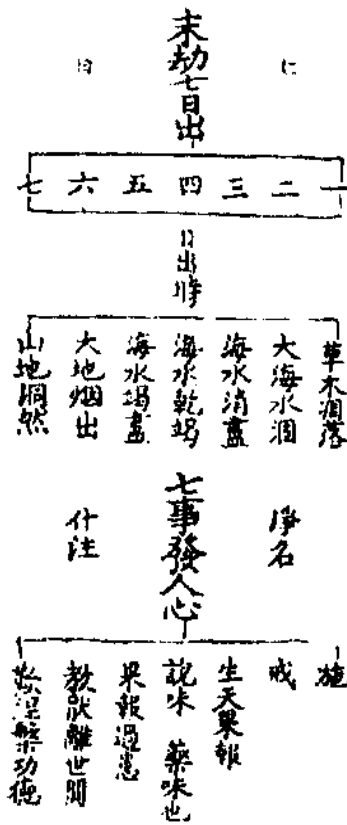 末劫七日出
一
二
三
四
五
六
七
日出時
草木凋落
大海水涸
海水消盡
海水乾竭
海水竭盡
大地烟出
山地洞然
七事發人心
淨名
什注
施
戒
生天果報
說味 藥味也
果報過患
教猒離世間
歎涅槃功德